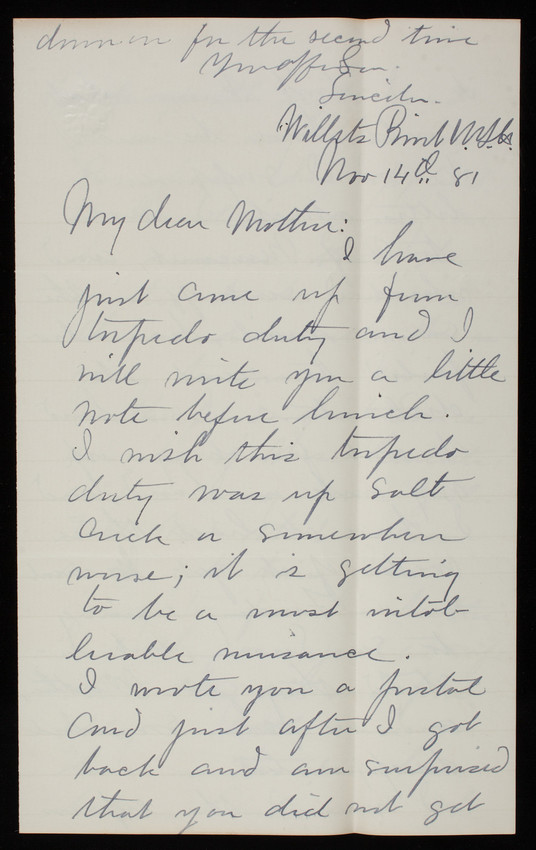 down on for the second time
Your aff. Son.
Lincoln.
Willets Point N.Y.H.
Nov 14th 81
My dear Mother:
I have
just come up from
torpedo duty and I
will write you a little
note before lunch.
I wish this torpedo
duty was up Salt
Creek or somewhere
worse; it is getting
to be a most intol-
lerable nuisance.
I wrote you a postal
Card just after I got
back and am surprised
that you did not get